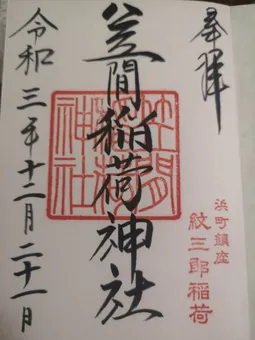 奉拝
浜町鎮座
紋三郎稲荷
笠間稲荷神社
笠間
稲荷
神社
令和三年十二月二十一日